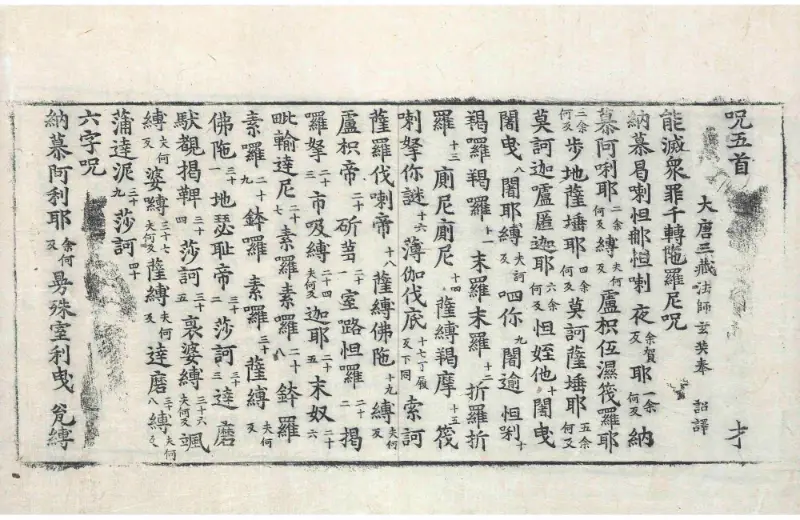 呪五首 才
大唐三藏法師玄奘奉 詔譯
能滅衆罪千轉陁羅尼呪
納慕曷喇怛郍怛喇夜余賀反耶余何反一納
慕阿唎耶余何反二縛夫何反盧枳伍濕筏羅耶
余何反三步地薩埵耶余何反四莫訶薩埵耶余何反五
莫訶迦嚧匿迦耶余何反六怛姪他七闍曳
闍曳八闍耶縛夫訶反呬你九闍逾怛唎十
羯羅羯羅十一末羅末羅十二折羅折
羅十三廁尼廁尼十四薩縛羯摩十五筏
喇拏你謎十六薄伽伐底十七丁履反下同索訶
薩羅伐喇帝十八薩縛佛陁十九縛夫何反
盧枳帝二十斫芻二十一室路怛羅二十二揭
羅拏二十三市吸縛夫何反二十四迦耶二十五末奴二十六
毗輸達尼二十七素羅素羅二十八鉢羅
素羅二十九鉢羅素羅三十薩縛夫何反
佛陁三十一地瑟耻帝三十二莎訶三十三達磨
馱覩揭鞞三十四莎訶三十五裒婆縛夫何反三十六颯
縛夫何反婆縛夫何反三十七薩縛夫何反達磨三十八縛夫何反
蒲達泥三十九莎訶四十
六字呪
納慕阿利耶余何反曼殊室利曳一